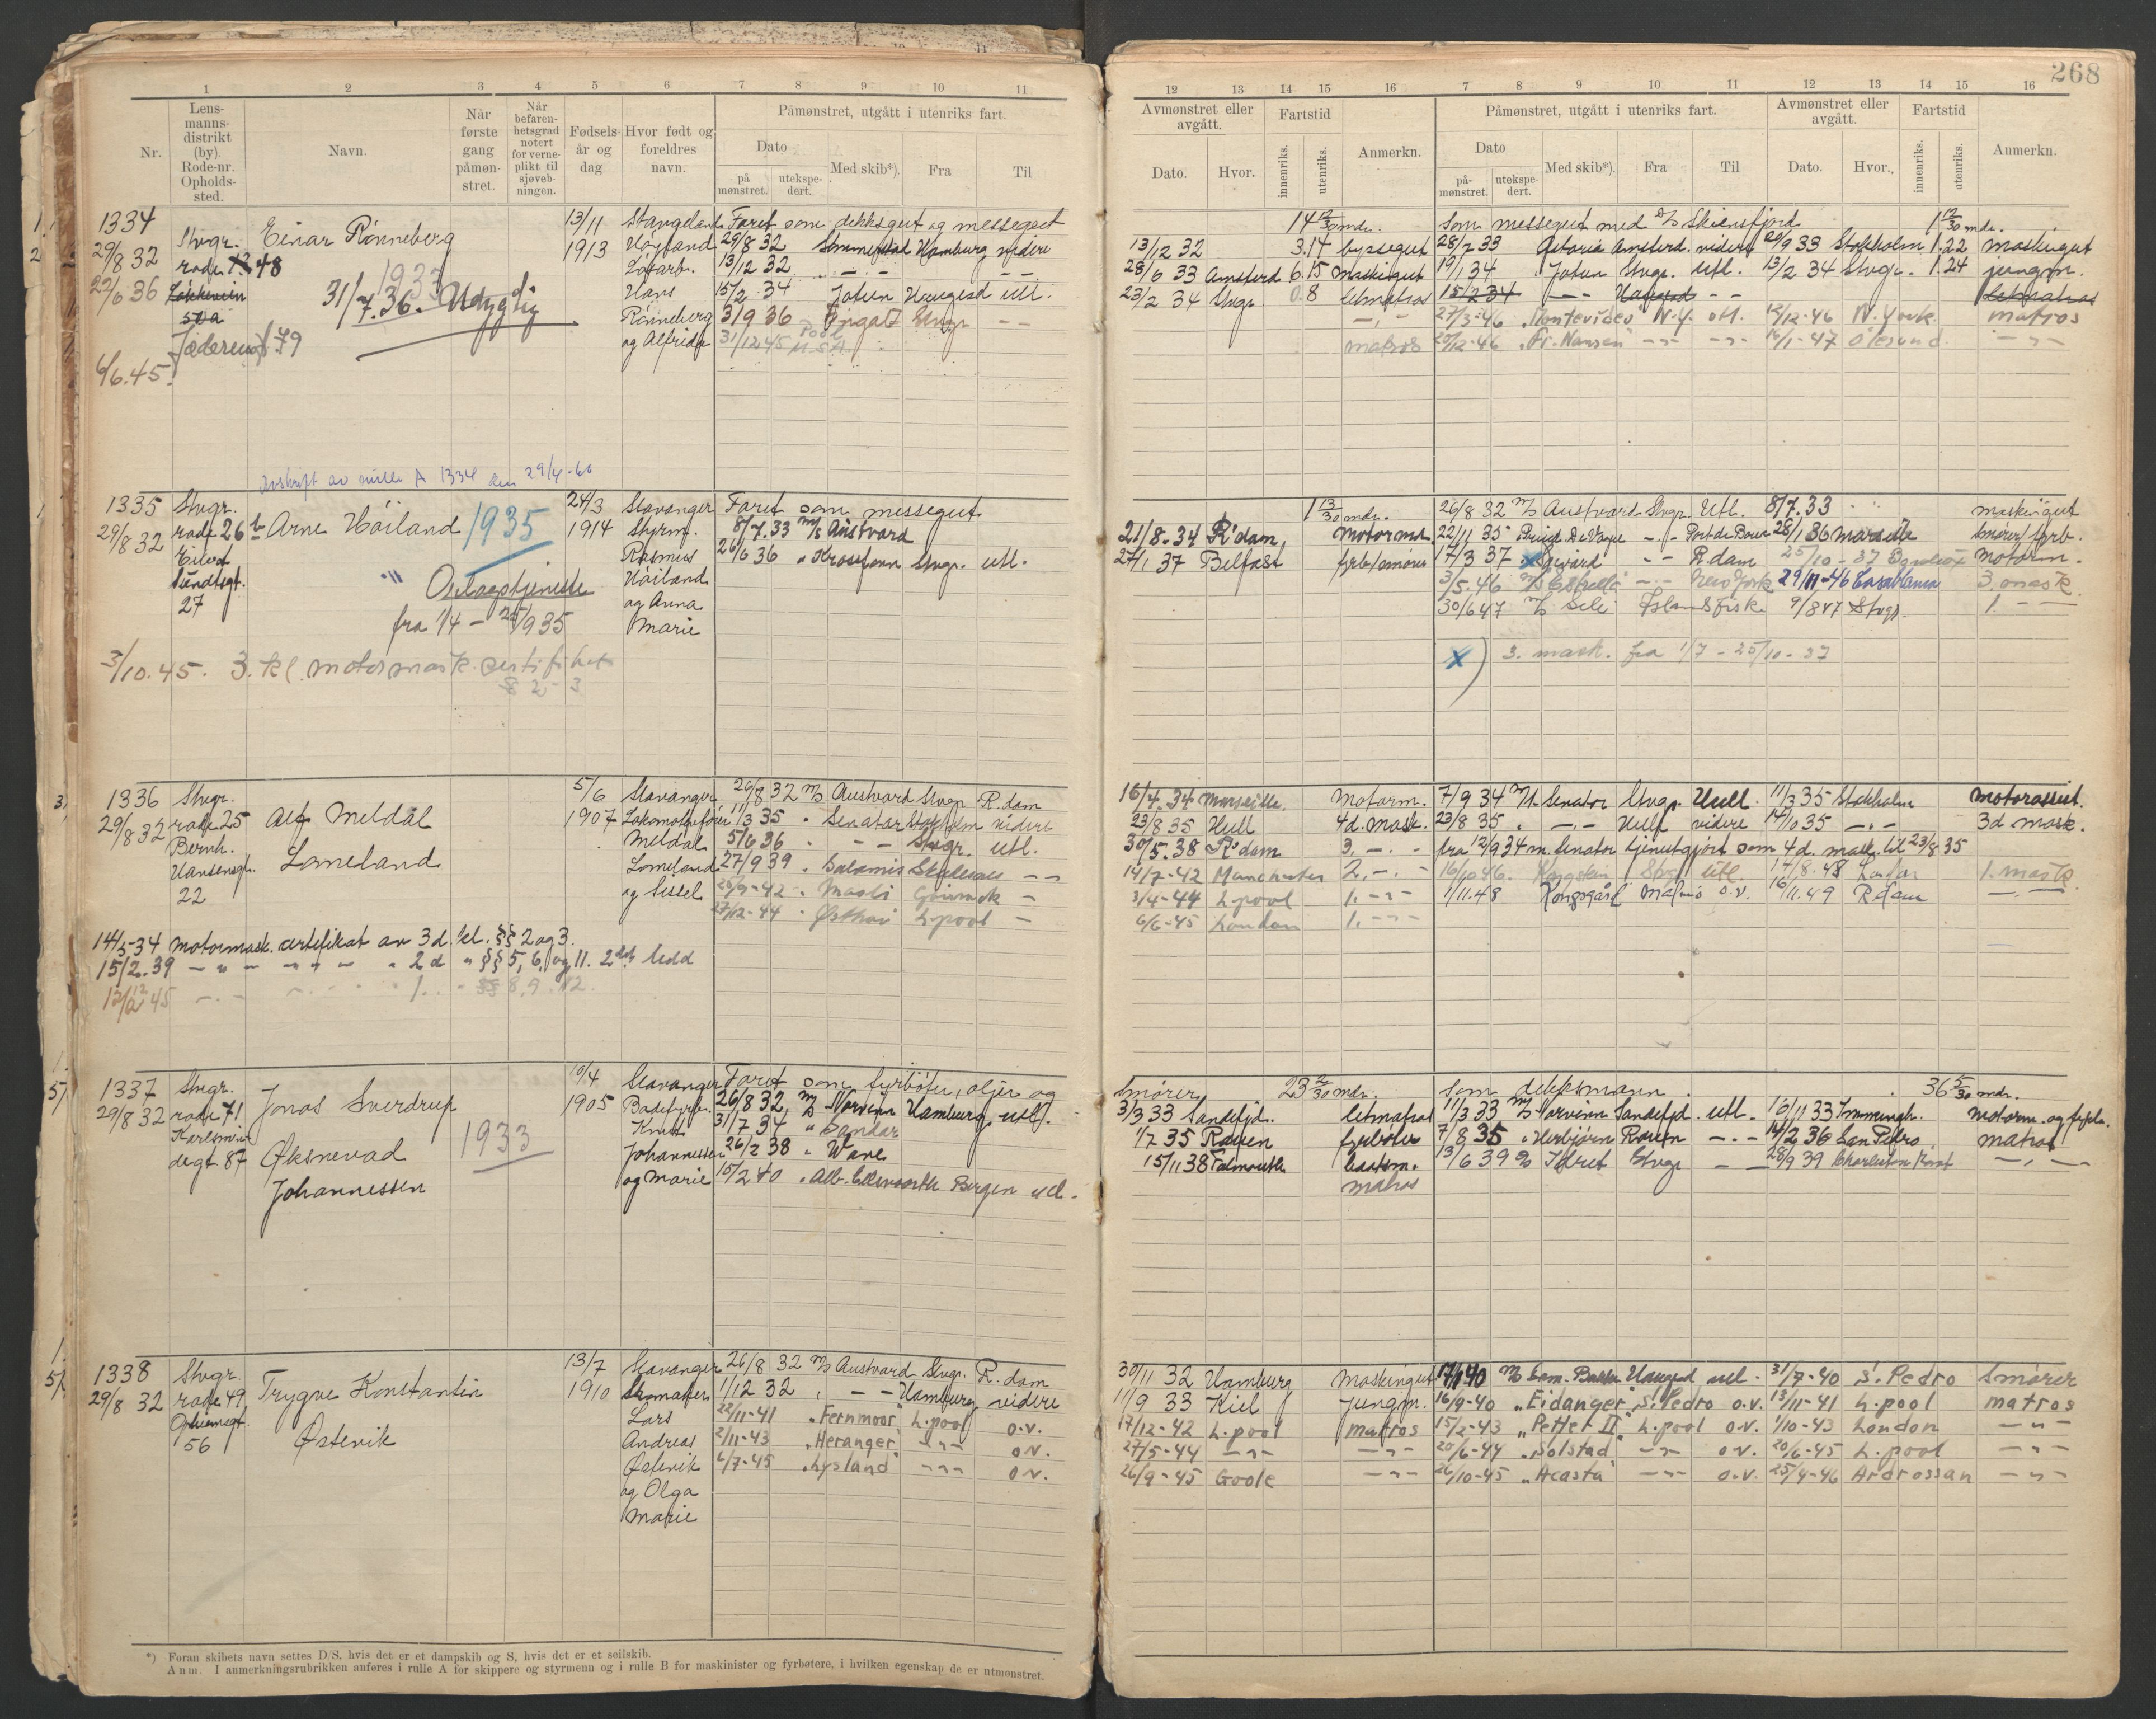 268
1 2 3 4 5 6 7 8 9 10 11
Nr.
Lens-
manns-
distrikt
(by).
Rode-nr.
Opholds-
sted.
Navn.
Når
første
gang
påmøn-
stret.
Når
befaren-
hetsgrad
notert
for verne-
plikt til
sjøveb-
ningen.
Fødsels-
år og
dag
Hvor født og
foreldres
navn.
Påmønstret, utgått i utenriks fart.
Dato
på
mønstret.
utekspe-
dert.
Med skib*).
Fra
Til
12 13 14 15 16 7 8 9 10 11 12 13 14 15 16
Avmønstret eller
avgått.
Dato.
Hvor.
Fartstid
innenriks.
utenriks.
Anmerkn.
Påmønstret, utgått i utenriks fart.
Dato
på-
mønstret.
utekspe-
dert.
Med skib*).
Fra
Til
Avmønstret eller
avgått.
Dato.
Hvor.
Fartstid
innenriks.
utenriks.
Anmerkn.
1334
29/8 32
22/6 36
6/6.45.
Stvgr.
rode 48
Einar Rønneberg
1933
31/7.36. Udygtig
13/11
1913
Stangeland
Høiland
Hans
Rønneberg
og Alfrida
Faret som dekksgut og messegut
29/8 32 Hamburg videre
13/12 32 — — —
15/2 34 Jotun Haugesd utl.
3/9 36 Stvgr. — —
31/12 45
14 12/30 mdr. som messegut med D/S Skiensfjord 1 12/30 mdr.
13/12 32 3.14 byssegut 28/7 33 Astoria Amsterd. videre 20/9 33 Stokholm 1.22 maskingut
28/6 33 Amsterd 6.15 maskingut 19/1 34 Jotun Stvgr. Utl. 13/2 34 Stvgr. 1.24 jungm.
23/2 34 Stvgr 0.8 letmatros 15/2 34 — — Haugesd — — letmatros
27/3-46 „Montevideo N.Y. utl. 12/12-46 N. York. matros
matros 20/12-46 „Fr. Nansen — — 14/1-47 Ålesund. — „ —
Avskrift av rulle A 1334 den 29/4-60
1335
29/8 32
Stvgr.
rode 26 b
Eilert
Sundtsgt.
27
Arne Høiland 1935
Oplagstjeneste
fra 1/4 - 25/9 35
24/3
1914
Stavanger
Styrm.
Rasmus
Høiland
og Anna
Marie
Faret som messegut
8/7.33 M/S Austvard
26/6 36 „ Krossfonn Stvgr. utl.
3/10.45. 3. kl. motormask. certifikat
§ 2 - 3
1 13/30 mdr. 26/8 32 M/S Austvard Stvgr. Utl. 8/7.33 maskingut
21/8.34 R'dam, motormd. 22/11 35 — „ — Port de Bouc 28/1 36 Marseille smører/fyrb.
27/1 37 Belfast fyrb/smører 17/3 37 x — „ R.dam 25/10 - 37 motorm.
3/5.46 — „ New York 29/11-46 Casablanca 3. mask.
30/6 47 M/S Sele Islandsfiske 9/8 47 Stvgr. 1. — —
x) 3. mask. fra 1/7 - 25/10 - 37
1336
29/8 32
Stvgr.
rode 25
Bernh.
Hansensgt.
22
Alf Meldal
Lomeland
5/6
1907
Stavanger
Lokomotivfører
Meldal
Lomeland
og Sissel
26/8 32 M/S Austvard Stvgr. R.dam
11/3 35 „ Senator Stokholm videre
5/6 36 „ — — Stvgr. utl.
27/9 39 „ Salamis — —
28/9-42 „ Greenock —
27/12-44 „ Østhav L.pool —
14/5 34 Motormask. certifikat av 3d. kl. §§ 2 og 3.
15/2.39 — „ — — „ — „ 2 d „ §§ 5, 6, og 11. 2det ledd
12/12 45 — „ — 1. „ §§ 8, 9. 12.
16/4.34 Marseille. motorm. 7/9 34 M/S. Senator Stvgr. Hull. 11/3 35 Stokholm motorassist.
23/8 35 Hull 4d. mask. 23/8 35 „ — „ — Hull videre 14/10 35 — „ — 3d mask.
30/5.38 R'dam 3. — „ — fra 12/9 34 m. Senator tjenestgjort som 4d. mask. til 23/8 35
14/7-42 Manchester 2. — „ — 16/10 46. Stvgr utl. 17/8.48 1. mask.
3/4-44 L.pool 1. — „ — 1/11.48 Kongsgård Malmö o.v. 16/11.49 R.dam — „ —
6/6-45 London 1. — „ —
1337
29/8 32
Stvgr.
rode 71
Karlsmin-
degt 87
Jonas Sverdrup
Øksnevad
Johannessen
1933
10/4
1905
Stavanger
Badefyrb.
Knut
Johannessen
og Marie
Faret som fyrbøter, oljer og
26/8 32, M/S Norvinn Hamburg, utl.
31/7 34 „ Sandar
26/2 38 „ Vane
15/2 40 „ Alb. Ellsworth Bergen utl.
smører, 23 2/30 mdr. som dekksmann. 36 5/30 mdr.
3/3 33 Sandefjd. letmatros 11/3 33 M/S Norvinn Sandefjd. utl. 16/11 33 Immingh. motorm. og fyrb.
1/7 35 Rouen fyrbøter 7/8 35 „ Herbjørn Rouen — „ — 14/2 36 San Pedro matros
15/11 38 Falmouth baatsm. 13/6 39 Stvgr — — 28/9 39 Charleston — „ —
matros
1338
29/8 32
Stvgr.
rode 49
56
Trygve Konstantin
Østevik
13/7
1910
Stavanger
Skomaker
Lars
Andreas
Østevik
og Olga
Marie
26/8 32 M/S Austvard Stvgr. R.dam
1/12 32 „ — — Hamburg videre
22/11-41 „Fernmoor" L.pool o.v.
2/11-43 „Heranger" — „ — o.v.
6/7-45 „Lysland" — „ — o.v.
30/11 32 Hamburg Maskingut 17/1 40 M/S Sam. Bakke Haugesd utl. 31/7-40 S. Pedro Smører
11/9 33 Kiel jungm. 16/9-40 „Eidanger" S. Pedro o.v. 13/11-41 L.pool matros
17/12-42 L.pool matros 15/2-43 „Petter II" L.pool o.v. 1/10-43 London — „ —
27/5-44 — „ — — „ — 20/6-44 „Solstad" — „ — o.v. 20/6-45 L.pool — „ —
26/9-45 Goole — „ — 26/10-45 „Acasta" — „ — o.v. 25/4-46 Ardrossan — „ —
*) Foran skibets navn settes D/S, hvis det er et dampskib og S, hvis det er et seilskib.
Anm. I anmerkningsrubrikken anføres i rulle A for skippere og styrmenn og i rulle B for maskinister og fyrbøtere, i hvilken egenskap de er utmønstret.